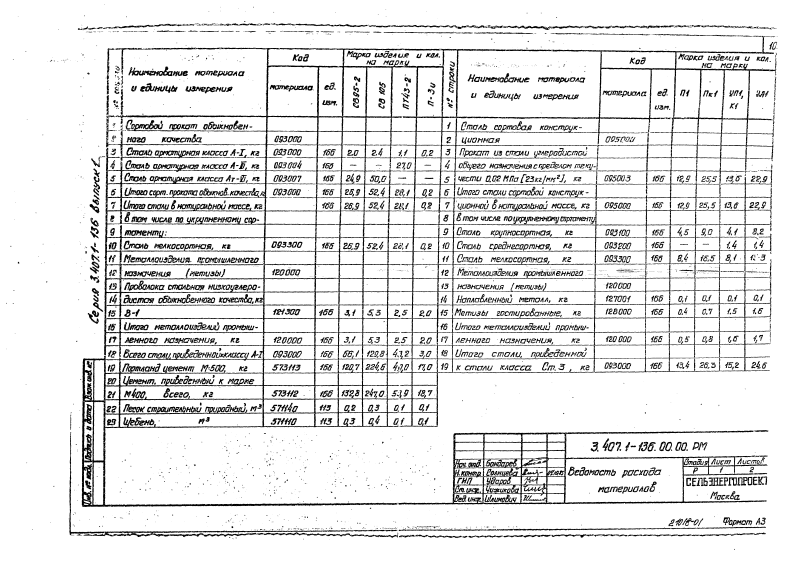 10
Серия 3.407.1-136 Выпуск 1
№ строки
Наименование материала и единицы измерения
Код
Марка изделия и кол. на марку
материала
ед. изм.
СВ95-2
СВ 105
ПТ43-2
П-3и
1 Сортовой прокат обыкновен-
2 ного качества 093000
3 Сталь арматурная класса А-I, кг 093000 166 2,0 2,4 1,1 0,2
4 Сталь арматурная класса А-III, кг 093004 166 — — 27,0 —
5 Сталь арматурная класса Ат-VI, кг 093007 166 24,9 50,0 — —
6 Итого сорт. проката обыкнов. качества, кг 093000 166 26,9 52,4 28,1 0,2
7 Итого стали в натуральной массе, кг 166 26,9 52,4 28,1 0,2
8 В том числе по укрупненному сор-
9 таменту:
10 Сталь мелкосортная, кг 093300 166 26,9 52,4 28,1 0,2
11 Металлоизделия промышленного
12 назначения (метизы) 120000
13 Проволока стальная низкоуглеро-
14 дистая обыкновенного качества, кг
15 В-1 121300 166 3,1 5,3 2,5 2,0
16 Итого металлоизделий промыш-
17 ленного назначения, кг 120000 166 3,1 5,3 2,5 2,0
18 Всего стали, приведенной к классу А-I 093000 166 129,8 43,2 3,0
19 Портланд цемент М-500, кг 573113 166 120,7 224,6 17,0
20 Цемент, приведенный к марке
21 М400, всего, кг 573112 166 132,8 247,0 53,9 18,7
22 Песок строительный природный, м³ 571140 113 0,2 0,3 0,1 0,1
23 Щебень, м³ 571110 113 0,3 0,4 0,1 0,1
№ строки
Наименование материала и единицы измерения
Код
Марка изделия и кол. на марку
материала
ед. изм.
П1
Пк1
УП1, К1
УП1
1 Сталь сортовая конструк-
2 ционная 095000
3 Прокат из стали углеродистой
4 общего назначения с пределом теку-
5 чести 0,02 МПа [23кг/мм²], кг 095003 166 12,9 25,5 13,6 22,9
6 Итого стали сортовой конструк-
7 ционной в натуральной массе, кг 095000 166 12,9 25,5 13,6 22,9
8 В том числе по укрупненному сортаменту
9 Сталь крупносортная, кг 093100 166 4,5 9,0 4,1 8,2
10 Сталь среднесортная, кг 093200 166 — — 1,4 1,4
11 Сталь мелкосортная, кг 093300 166 8,4 16,5 8,1
12 Металлоизделия промышленного
13 назначения (метизы) 120000
14 Наплавленный металл, кг 127001 166 0,1 0,1 0,1 0,1
15 Метизы гостированные, кг 128000 166 0,4 0,7 1,5 1,6
16 Итого металлоизделий промыш-
17 ленного назначения, кг 120000 166 0,5 0,8 1,6 1,7
18 Итого стали, приведенной
19 к стали класса Ст. 3, кг 093000 166 13,4 26,3 15,2 24,6
3.407.1-136.00.00.РМ
Нач. отд. Бондарев
Н. контр. Солнцева
ГИП Ударов
Ст. инж. Чижикова
Вед. инж. Шлиневич
Ведомость расхода материалов
Стадия Лист Листов
Р 1 2
СЕЛЬЭНЕРГОПРОЕКТ
Москва
Инв. № подл. Подпись и дата Взам. инв. №
21018-01 Формат А3